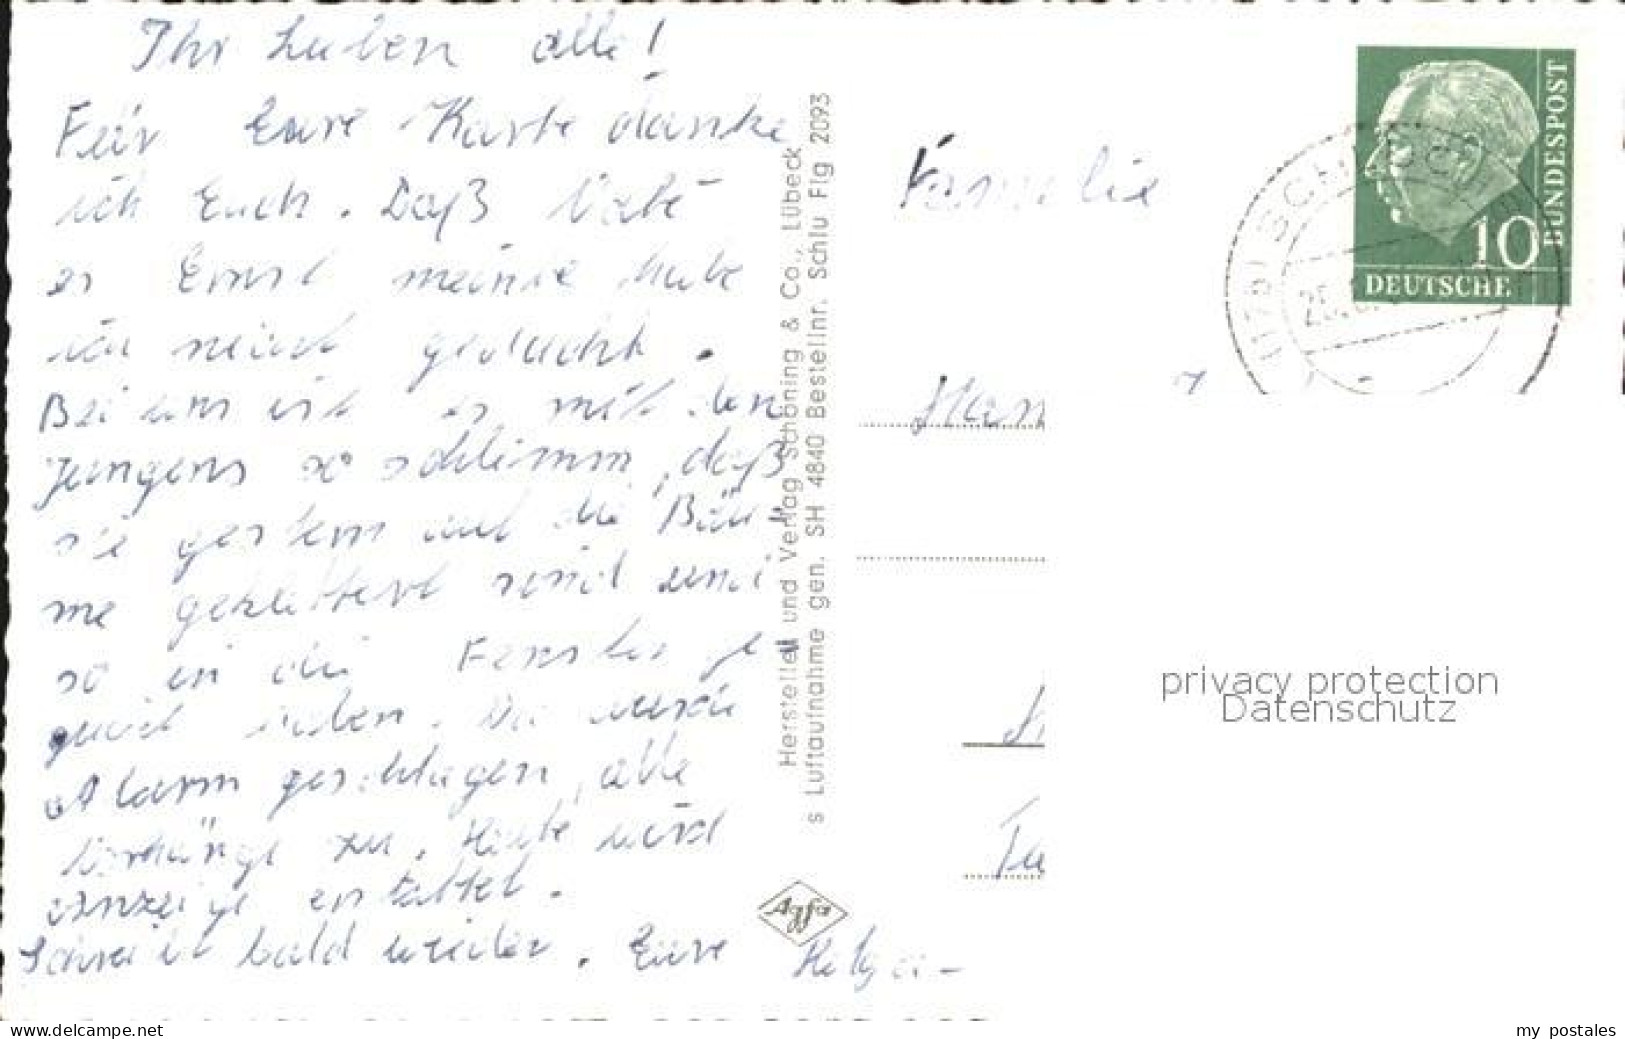 Ihr Lieben alle!
Für Eure Karte danke
ich Euch. Daß Vati
es Ernst meinte habe
ich nicht gedacht.
Bei uns ist es mit den
Jungens so schlimm, daß
sie gestern auf die Bäu-
me geklettert sind und
so in die Fenster ge-
guckt haben. Da wurde
Alarm geschlagen, alle
Vorhänge zu. Heute wird
Anzeige erstattet.
Schreib bald wieder. Eure Helga-
Hersteller und Verlag Schöning & Co., Lübeck
s Luftaufnahme gen. SH 4840 Bestellnr. Schlu Flg 2093
Agfa
Familie
10
BUNDESPOST
DEUTSCHE
privacy protection
Datenschutz
www.delcampe.net
my postales